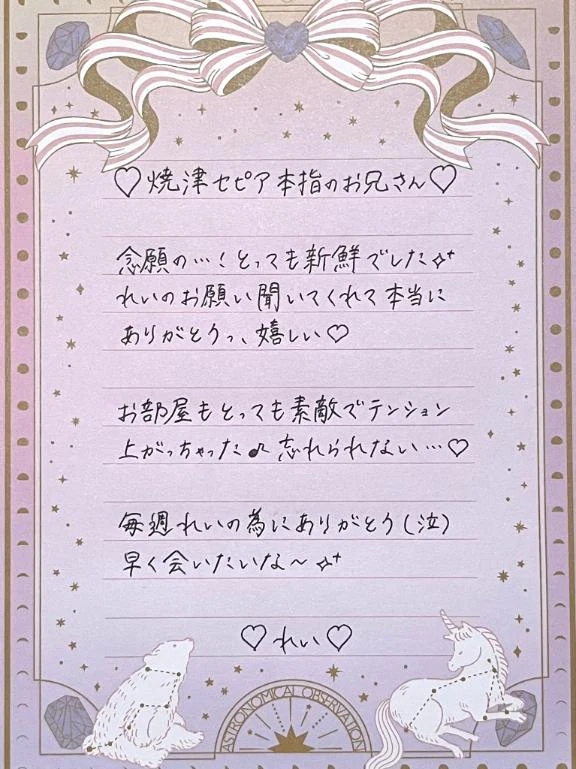 ♡焼津セピア本指のお兄さん♡
念願の…！とっても新鮮でした✧⁺
れいのお願い聞いてくれて本当に
ありがとうっ、嬉しい♡
お部屋もとっても素敵でテンション
上がっちゃった♪忘れられない…♡
毎週れいの為にありがとう(泣)
早く会いたいな〜✧⁺
♡れい♡
ASTRONOMICAL OBSERVATION